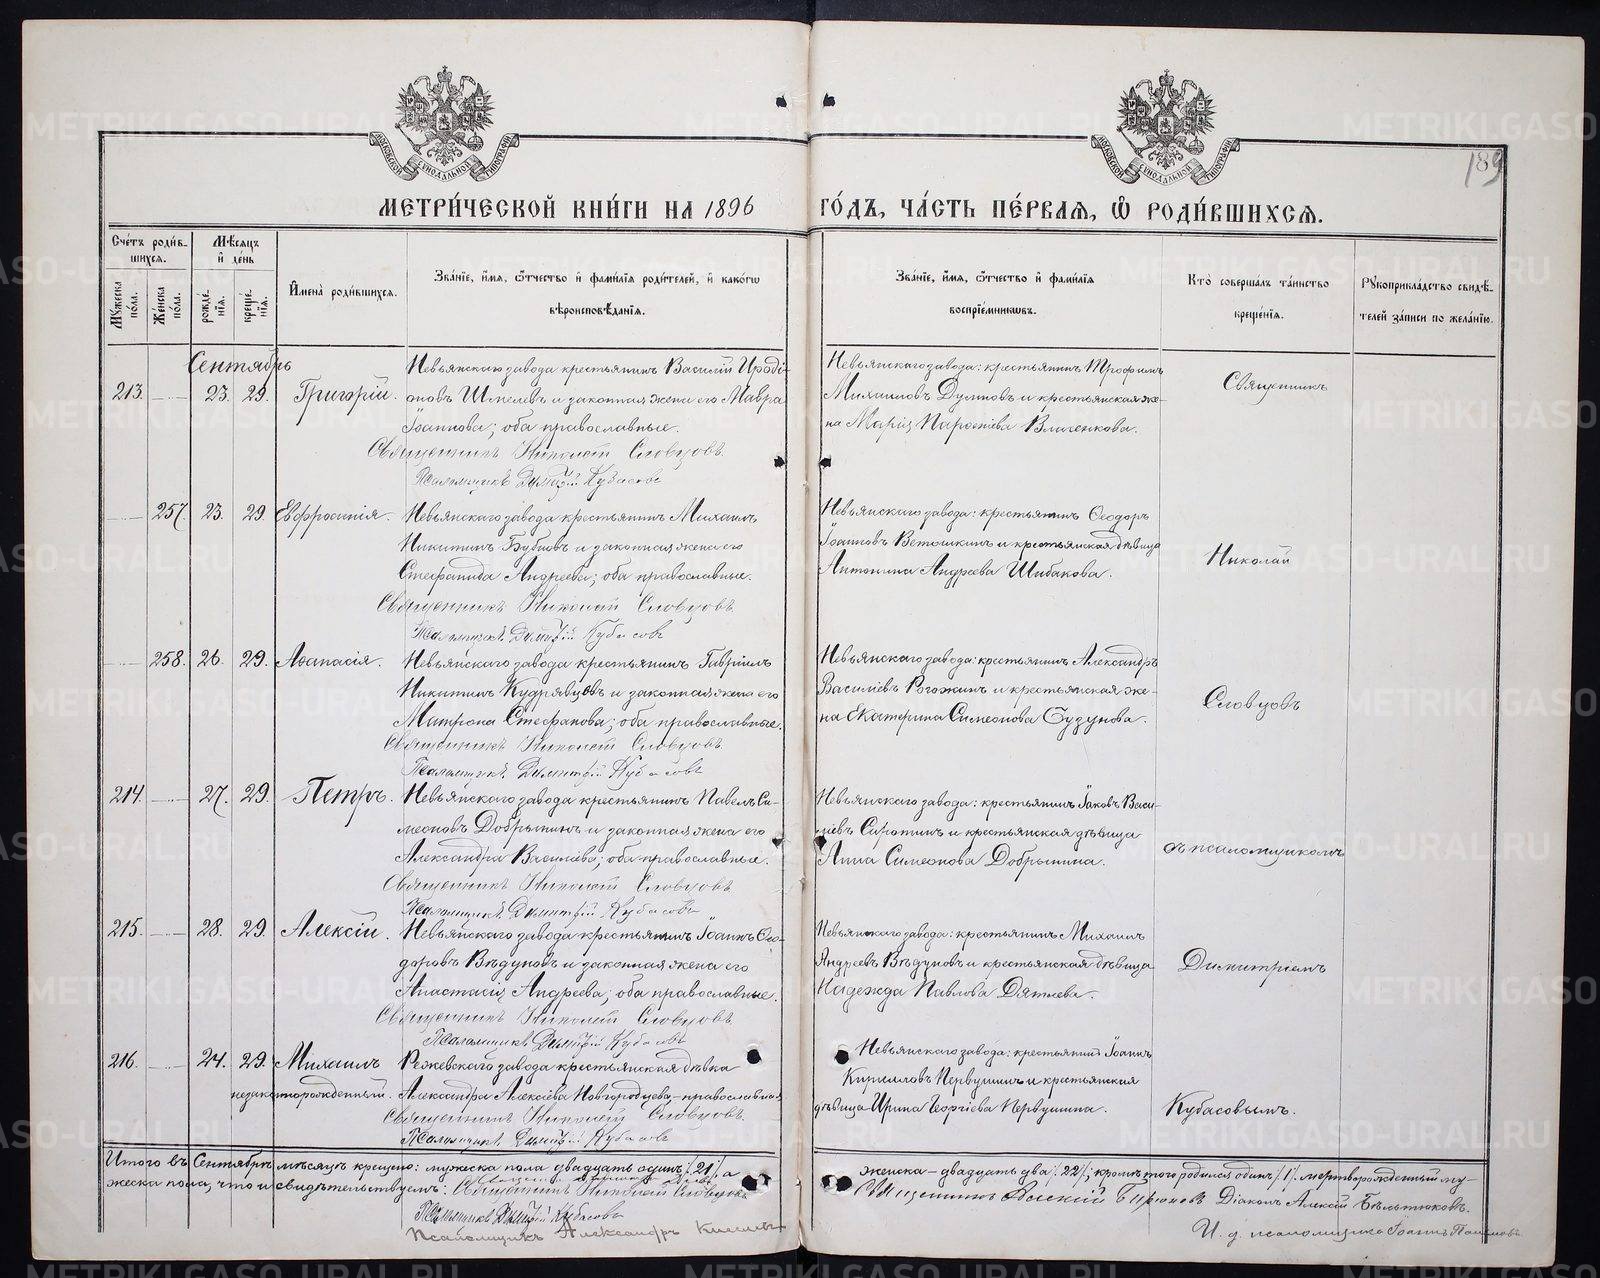 189
МЕТРИ́ЧЕСКОЙ КНИ́ГИ НА 1896 ГО́ДЪ, ЧА́СТЬ ПЕ́РВАЯ, Ѽ РОДИ́ВШИХСЯ.
Сче́тъ роди́в-
шихся.
Мꙋжеска по́ла.
Же́нска по́ла.
Мѣ́сяцъ
и҆ де́нь
рожде́-
нїя.
креще́-
нїя.
И҆мена̀ роди́вшихся.
Зва́нїе, и҆́мя, ѻ҆́тчество и҆ фами́лїя роди́телей, и҆ како́гѡ
вѣроисповѣ́данїя.
Зва́нїе, и҆́мя, ѻ҆́тчество и҆ фами́лїя
воспрїе́мникѡвъ.
Кто̀ соверша́лъ та́инство
креще́нїя.
Рꙋкоприкла́дство свидѣ́-
телей за́писи по жела́нїю.
Сентябрь
213. 23. 29. Григорій.
Невьянскаго завода крестьянинъ Василій Иродіо-
новъ Шмелевъ и законная жена его Мавра
Іоаннова; оба православные.
Священникъ Николай Словцовъ
Псаломщикъ Димитрій Кубасовъ
Невьянскаго завода: крестьянинъ Трофимъ
Михаиловъ Думновъ и крестьянская же-
на Марія Парѳеніева
Священникъ
257. 23. 29. Евфросинія.
Невьянскаго завода крестьянинъ Михаилъ
Никитинъ Бубновъ и законная жена его
Стефанида Андреева; оба православные.
Священникъ Николай Словцовъ
Псаломщикъ Димитрій Кубасовъ
Невьянскаго завода: крестьянинъ Ѳеодоръ
Іоанновъ Ветошкинъ и крестьянская дѣвица
Антонина Андреева Шибакова.
Николай
258. 26. 29. Аѳанасія.
Невьянскаго завода крестьянинъ Гавріилъ
Никитинъ Кудрявцовъ и законная жена его
Матрона Стефанова; оба православные.
Священникъ Николай Словцовъ
Псаломщикъ Димитрій Кубасовъ
Невьянскаго завода: крестьянинъ Александръ
Василіевъ Рогожинъ и крестьянская же-
на Екатерина Симеонова
Словцовъ
214. 27. 29. Петръ.
Невьянскаго завода крестьянинъ Павелъ Си-
меоновъ Добрынинъ и законная жена его
Александра Василіева; оба православные.
Священникъ Николай Словцовъ
Псаломщикъ Димитрій Кубасовъ
Невьянскаго завода: крестьянинъ Іаковъ Васи-
ліевъ Сиротинъ и крестьянская дѣвица
Анна Симеонова Добрынина.
съ псаломщикомъ
215. 28. 29. Алексій.
Невьянскаго завода крестьянинъ Іоаннъ Ѳео-
доровъ Вѣдуновъ и законная жена его
Анастасія Андреева; оба православные.
Священникъ Николай Словцовъ
Псаломщикъ Димитрій Кубасовъ
Невьянскаго завода: крестьянинъ Михаилъ
Андреевъ Вѣдуновъ и крестьянская дѣвица
Надежда Павлова Дятлева.
Димитріемъ
216. 24. 29. Михаилъ
незаконнорожденный.
Режевскаго завода крестьянская дѣвка
Александра Алексіева Новгородцева, - православная
Священникъ Николай Словцовъ
Псаломщикъ Димитрій Кубасовъ
Невьянскаго завода: крестьянинъ Іоаннъ
Кирилловъ Первушинъ и крестьянская
дѣвица Ирина Георгіева Первушина.
Кубасовымъ.
Итого въ Сентябрѣ мѣсяцѣ крещено: мужеска пола двадцать одинъ /21/, а женска – двадцать два /22/; кромѣ того родился одинъ /1/ мертворожденный му-
жеска пола, что и свидѣтельствуемъ: Священникъ Николай Словцовъ
Священникъ Бирюковъ Діаконъ Алексій Бѣльтюковъ.
Псаломщикъ Димитрій Кубасовъ
Псаломщикъ Александръ
И. д. псаломщика Іоаннъ